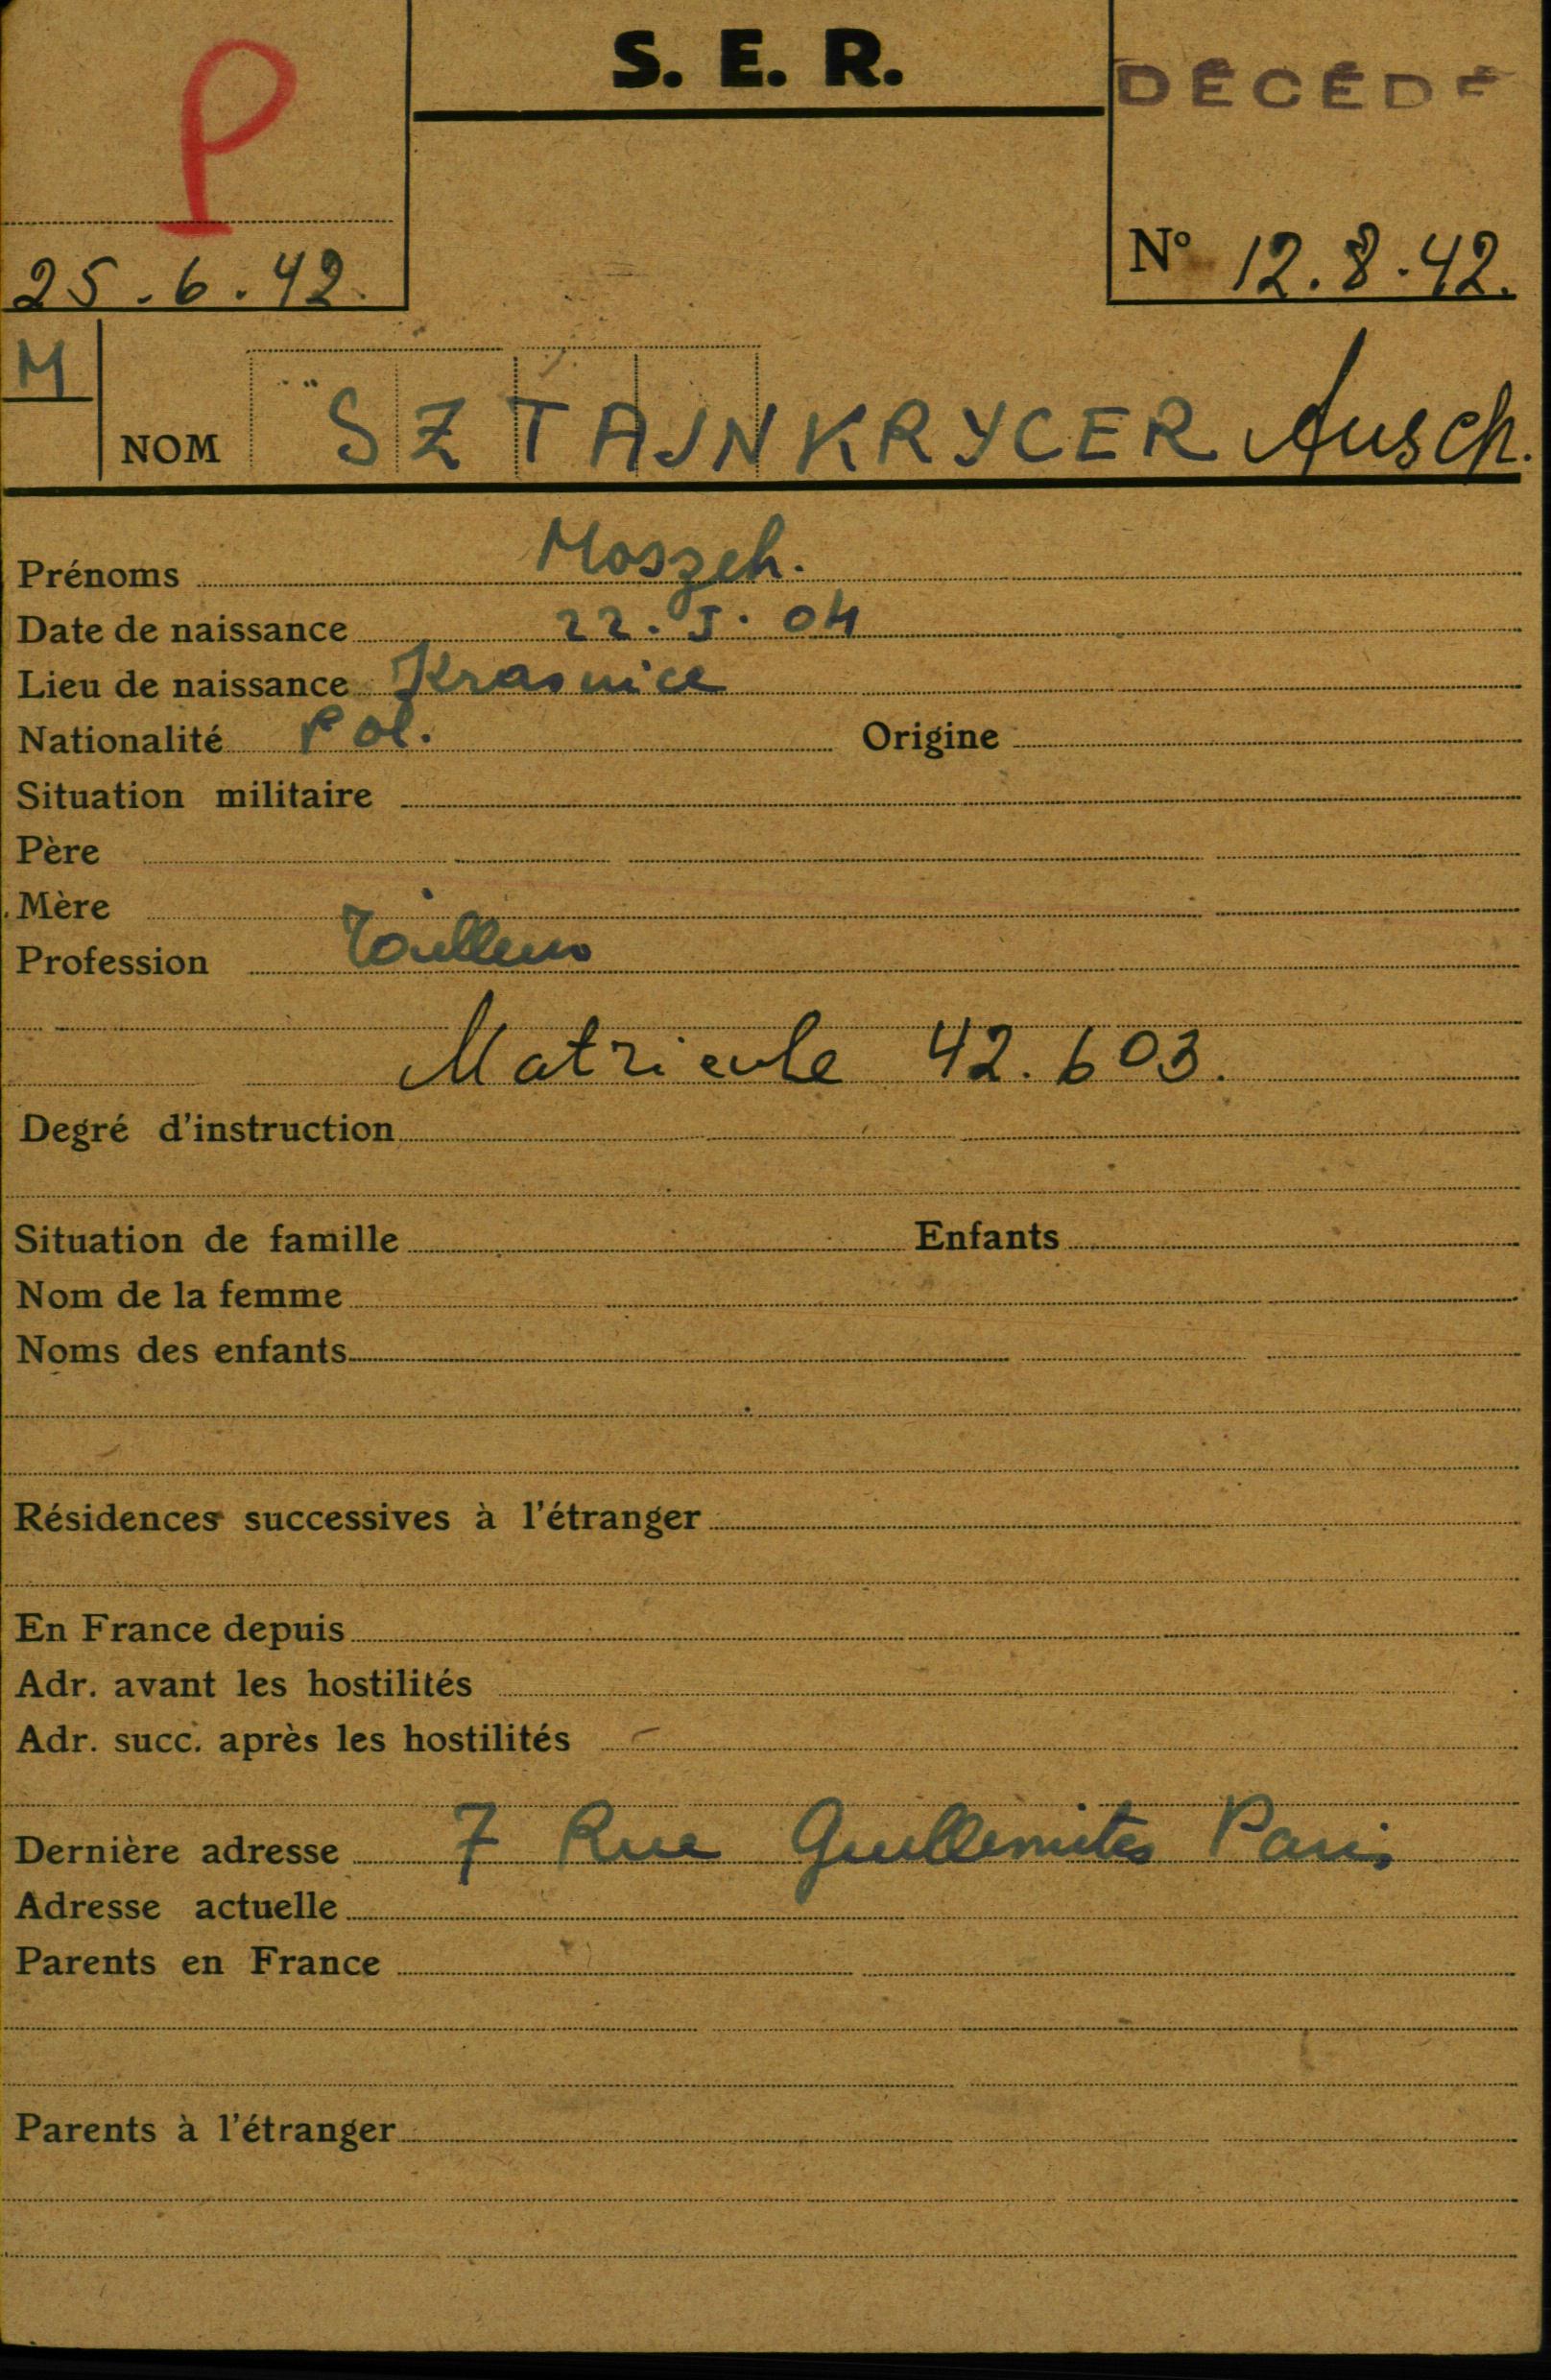 P
S. E. R.
DÉCÉDÉ
25.6.42.
Nº 12.8.42.
M
NOM SZTAJNKRYCER Ausch.
Prénoms Moszeh.
Date de naissance 22.5.04
Lieu de naissance Krasnice
Nationalité Pol. Origine
Situation militaire
Père
Mère
Profession Tailleur
Matricule 42.603.
Degré d'instruction
Situation de famille Enfants
Nom de la femme
Noms des enfants
Résidences successives à l'étranger
En France depuis
Adr. avant les hostilités
Adr. succ. après les hostilités
Dernière adresse 7 Rue Guillemites Paris
Adresse actuelle
Parents en France
Parents à l'étranger